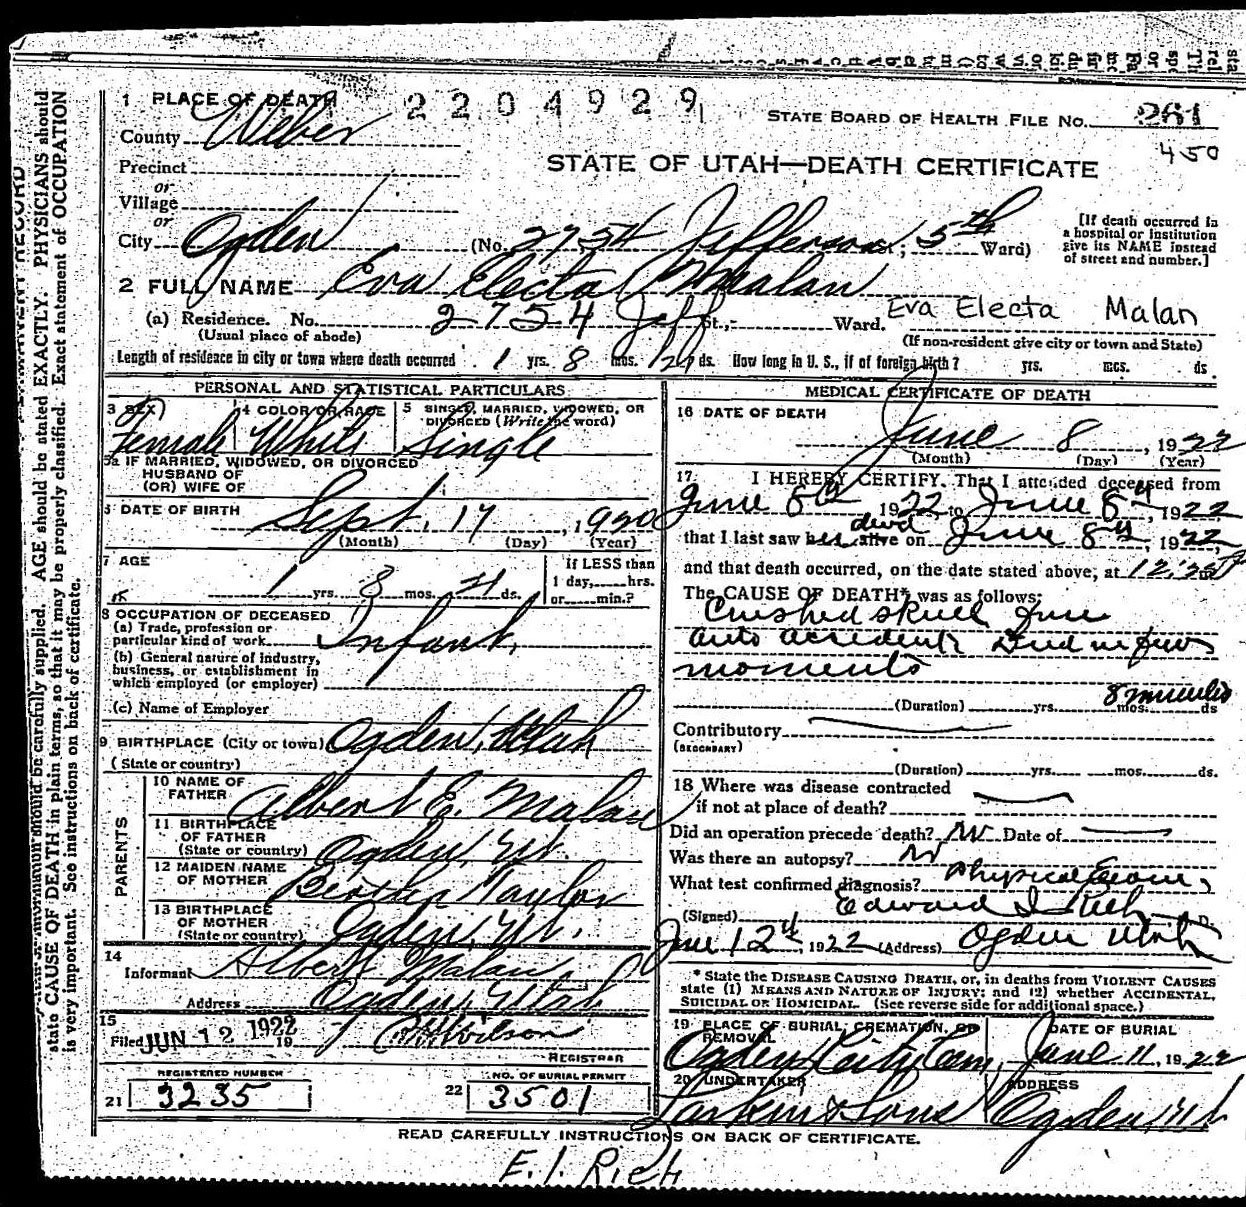 1 PLACE OF DEATH 2204929 STATE BOARD OF HEALTH FILE No. 261
County Weber 450
STATE OF UTAH—DEATH CERTIFICATE
Precinct
or
Village
or
City Ogden (No. 2754 Jefferson St.; 5th Ward)
[If death occurred in a hospital or institution give its NAME instead of street and number.]
2 FULL NAME Eva Electa Malan
(a) Residence. No. 2754 Jeff St., Ward. Eva Electa Malan
(Usual place of abode) (If non-resident give city or town and State)
Length of residence in city or town where death occurred 1 yrs. 8 mos. 21 ds. How long in U. S., if of foreign birth? yrs. mos. ds.
PERSONAL AND STATISTICAL PARTICULARS
3 SEX 4 COLOR OR RACE 5 SINGLE, MARRIED, WIDOWED, OR DIVORCED (Write the word)
Female White Single
5a IF MARRIED, WIDOWED, OR DIVORCED
HUSBAND OF
(OR) WIFE OF
6 DATE OF BIRTH
Sept. 17, 1920
(Month) (Day) (Year)
7 AGE If LESS than
1 yrs. 8 mos. 21 ds. 1 day, hrs.
or min.?
8 OCCUPATION OF DECEASED
(a) Trade, profession or
particular kind of work Infant.
(b) General nature of industry,
business, or establishment in
which employed (or employer)
(c) Name of Employer
9 BIRTHPLACE (City or town) Ogden, Utah
(State or country)
PARENTS
10 NAME OF FATHER Albert E. Malan
11 BIRTHPLACE OF FATHER (State or country) Ogden, Ut.
12 MAIDEN NAME OF MOTHER Taylor
13 BIRTHPLACE OF MOTHER (State or country) Ogden, Ut.
14
Informant Albert Malan
Address Ogden, Utah
15
Filed JUN 12 1922 19 Wilson
REGISTRAR
REGISTERED NUMBER NO. OF BURIAL PERMIT
21 3235 22 3501
MEDICAL CERTIFICATE OF DEATH
16 DATE OF DEATH
June 8, 1922
(Month) (Day) (Year)
17 I HEREBY CERTIFY, That I attended deceased from
June 8th 1922, to June 8th, 1922
that I last saw her dead alive on June 8th, 1922,
and that death occurred, on the date stated above, at 12:35 P
The CAUSE OF DEATH* was as follows:
Crushed skull from
auto accident Died in few
moments
8 minutes
(Duration) yrs. mos. ds
Contributory
(SECONDARY)
(Duration) yrs. mos. ds.
18 Where was disease contracted
if not at place of death?
Did an operation precede death? No Date of
Was there an autopsy? No
What test confirmed diagnosis? Physical Exam.
(Signed) Edward I Rich D.
June 12th, 1922 (Address) Ogden Utah
* State the DISEASE CAUSING DEATH, or, in deaths from VIOLENT CAUSES
state (1) MEANS AND NATURE OF INJURY; and (2) whether ACCIDENTAL,
SUICIDAL OR HOMICIDAL. (See reverse side for additional space.)
19 PLACE OF BURIAL, CREMATION, OR REMOVAL DATE OF BURIAL
Ogden City Cem, June 11, 1922
20 UNDERTAKER ADDRESS
Larkin & Sons Ogden, Ut
READ CAREFULLY INSTRUCTIONS ON BACK OF CERTIFICATE.
E. I. Rich
should be carefully supplied. AGE should be stated EXACTLY. PHYSICIANS should
state CAUSE OF DEATH in plain terms, so that it may be properly classified. Exact statement of OCCUPATION
is very important. See instructions on back of certificate.